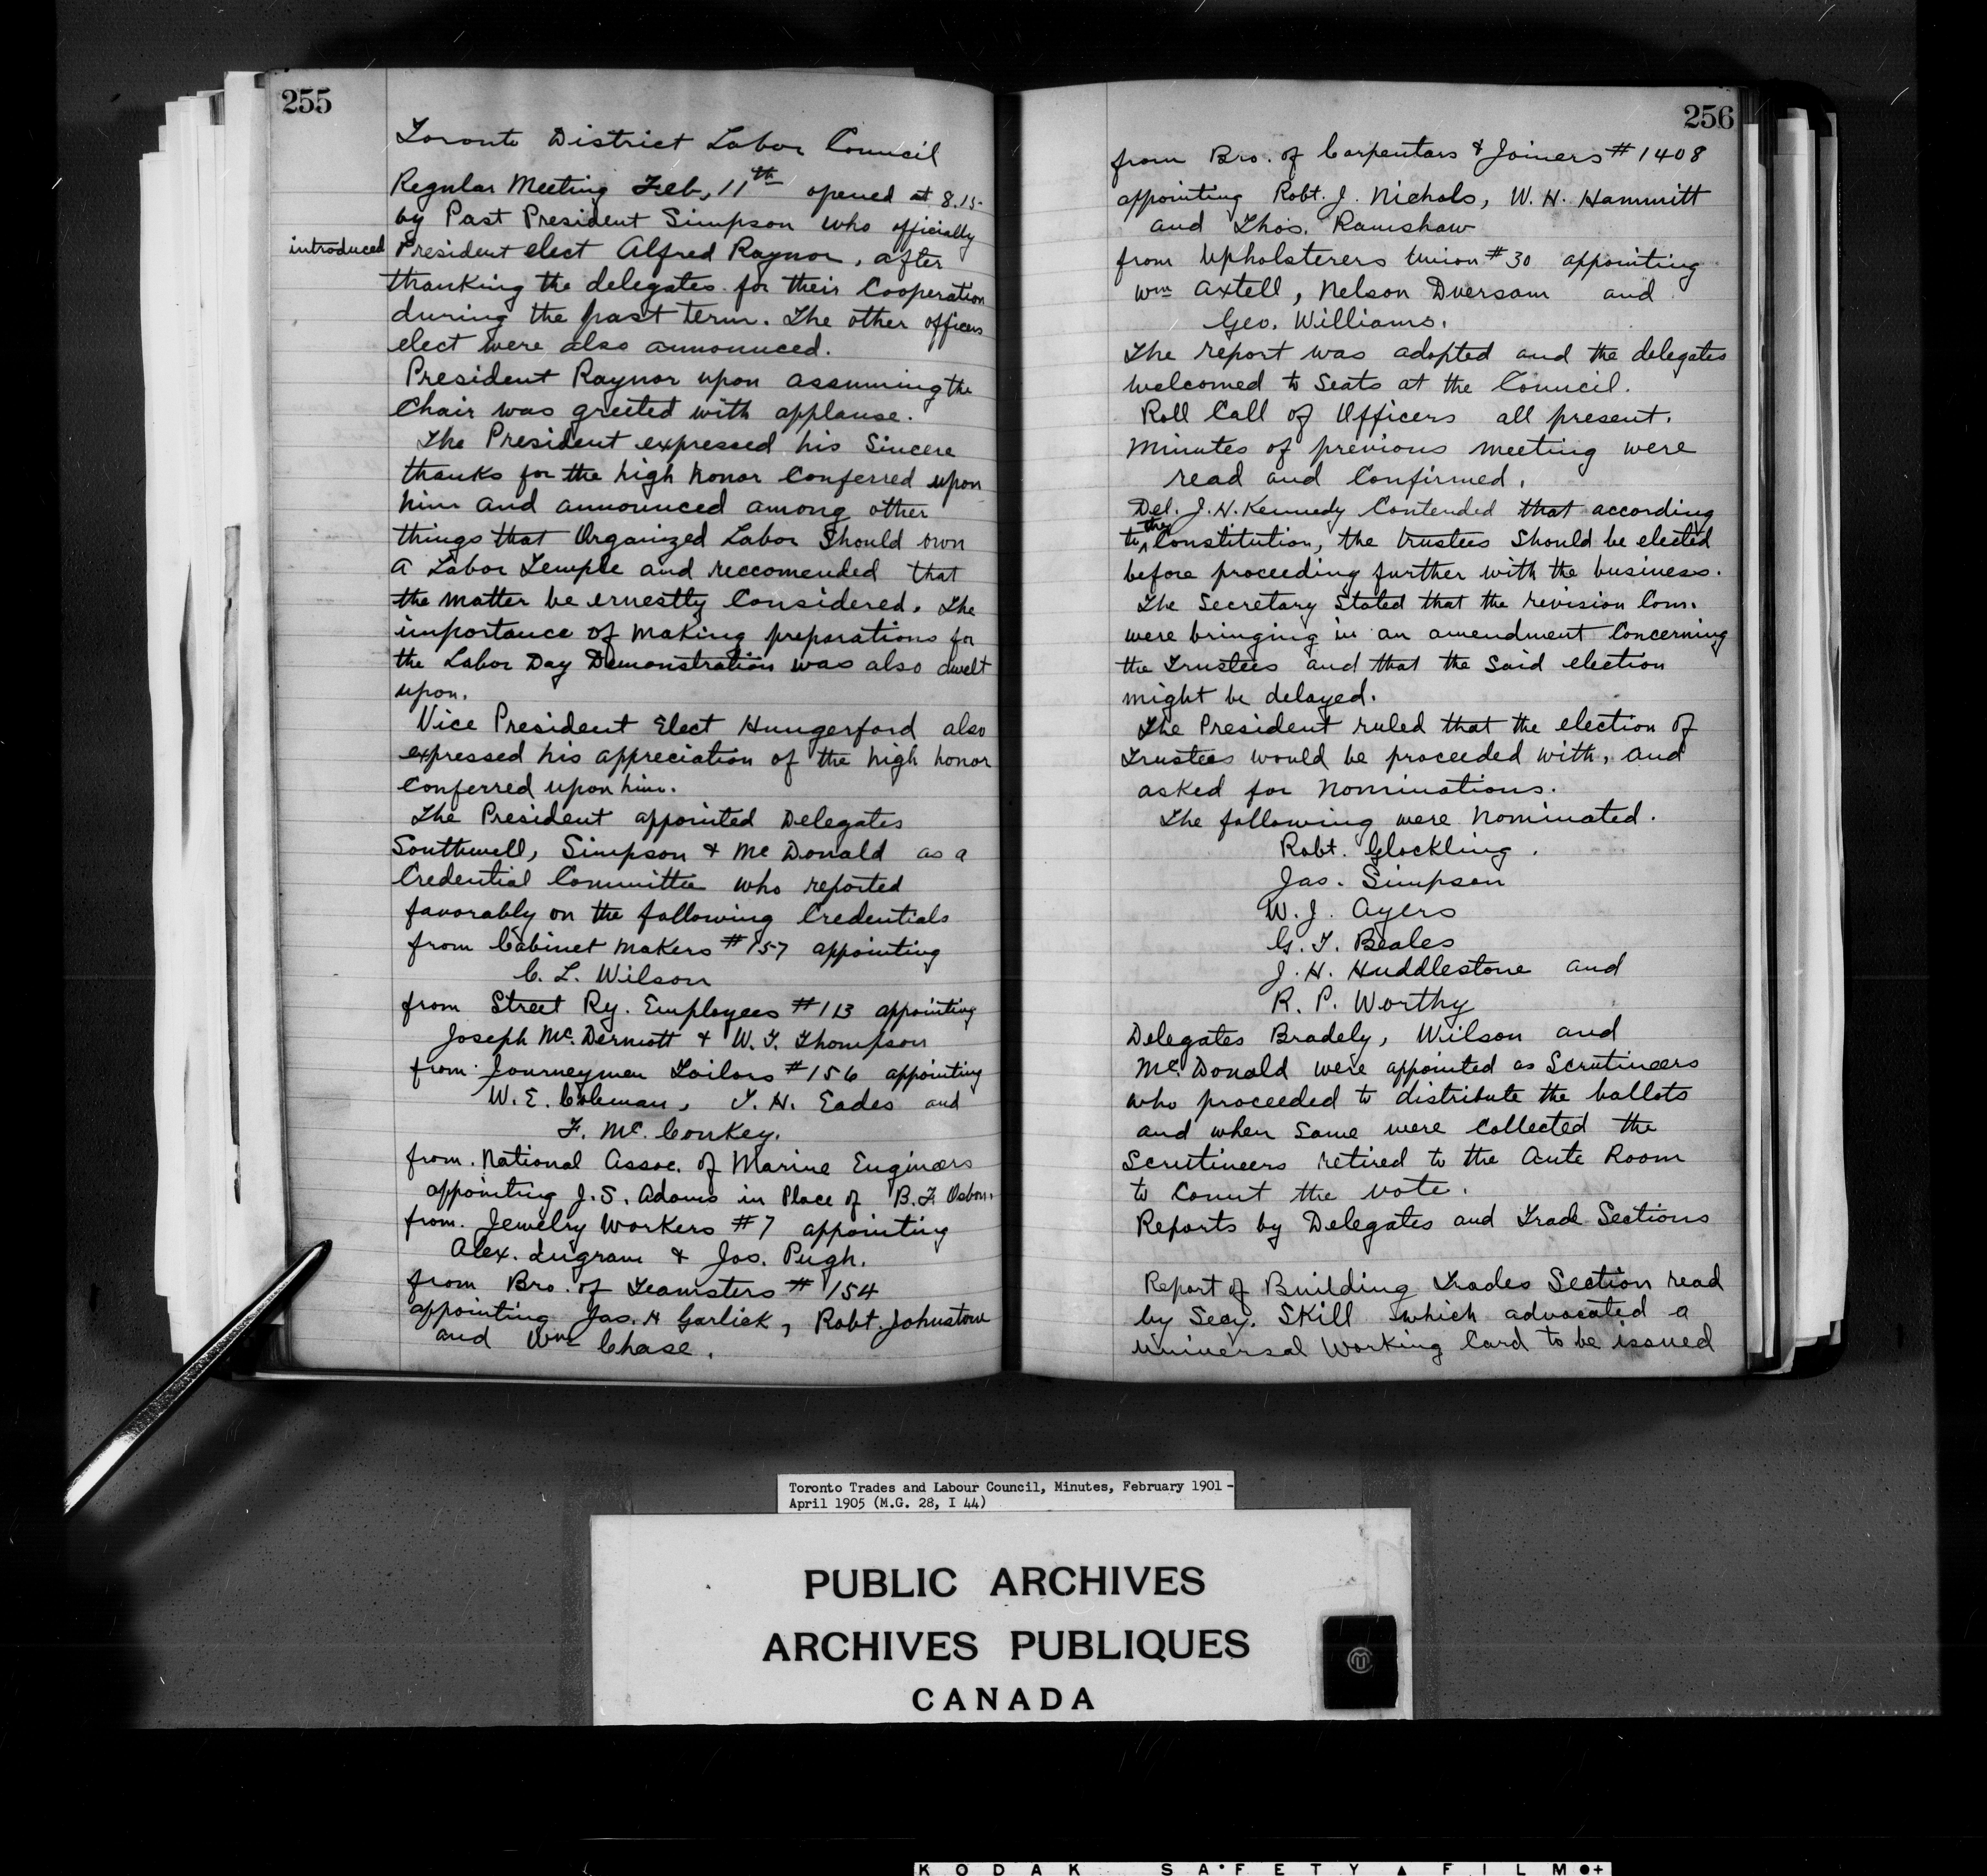 255
Toronto District Labor Council
Regular Meeting Feb, 11th opened at 8.15
by Past President Simpson who officially
introduced President elect Alfred Raynor, after
thanking the delegates for their Cooperation
during the past term. The other officers
elect were also announced.
President Raynor upon assuming the
Chair was greeted with applause.
The President expressed his Sincere
thanks for the high honor Conferred upon
him and announced among other
things that Organized Labor Should own
a Labor Temple and reccomended that
the matter be ernestly Considered. The
importance of making preparations for
the Labor Day Demonstration was also dwelt
upon.
Vice President Elect Hungerford also
expressed his appreciation of the high honor
Conferred upon him.
The President appointed Delegates
Southwell, Simpson & McDonald as a
Credential Committee who reported
favorably on the following Credentials
from Cabinet Makers #157 appointing
C. L. Wilson
from Street Ry. Employees #113 appointing
Joseph McDermott & W. T. Thompson
from Journeymen Tailors #156 appointing
W. E. Coleman, T. H. Eades and
F. McConkey.
from National Assoc. of Marine Engineers
appointing J. S. Adams in Place of B. F. Osborn.
from Jewelry Workers #7 appointing
Alex. Ingram & Jos. Pugh.
from Bro. of Teamsters #154
appointing Jas. H Garlick, Robt. Johnstone
and Wm Chase.
256
from Bro. of Carpentars & Joiners #1408
appointing Robt. J. Nichols, W. H. Hammitt
and Thos. Ramshaw
from Upholsterers Union #30 appointing
Wm Axtell, Nelson and
Geo. Williams.
The report was adopted and the delegates
welcomed to Seats at the Council.
Roll Call of Officers all present.
Minutes of previous meeting were
read and Confirmed.
Del. J. H. Kennedy Contended that according
to the Constitution, the trustees Should be elected
before proceeding further with the business.
The Secretary Stated that the revision Com.
were bringing in an amendment Concerning
the Trustees and that the Said election
might be delayed.
The President ruled that the election of
Trustees would be proceeded with, and
asked for Nominations.
The following were Nominated.
Robt. Glockling.
Jas. Simpson
W. J. Ayers
G. T. Beales
J. H. Huddlestone and
R. P. Worthy
Delegates Bradely, Wilson and
McDonald were appointed as Scrutineers
who proceeded to distribute the ballots
and when Same were Collected the
Scrutineers retired to the Ante Room
to Count the vote.
Reports by Delegates and Trade Sections
Report of Building Trades Section read
by Secy. Skill which advocated a
Universal Working Card to be issued
Toronto Trades and Labour Council, Minutes, February 1901 -
April 1905 (M.G. 28, I 44)
PUBLIC ARCHIVES
ARCHIVES PUBLIQUES
CANADA
KODAK SAFETY FILM